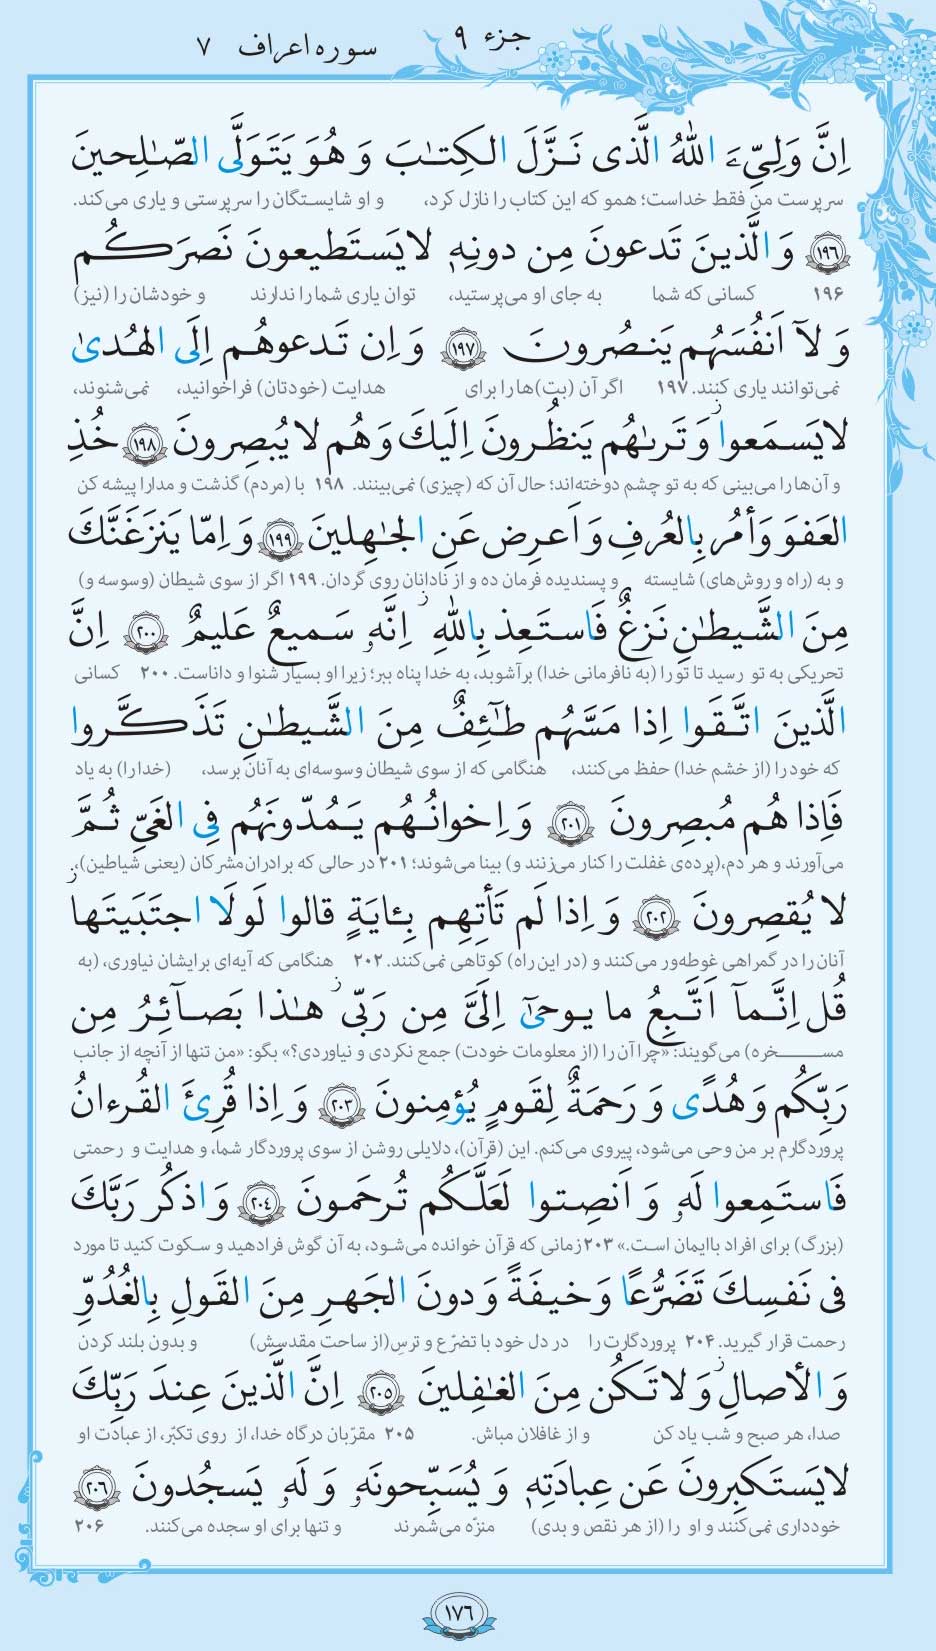 جزء ۹
سوره اعراف ۷
اِنَّ وَلِـِّیَ اللّٰهُ الَّذی نَـزَّلَ الـکِتٰـبَ وَ هُوَ یَتَوَلَّی الصّـٰلِحینَ
سرپرست من فقط خداست؛ همو که این کتاب را نازل کرد، و او شایستگان را سرپرستی و یاری می‌کند.
﴿۱۹۶﴾ وَ الَّذینَ تَدعونَ مِن دونِهٖ لایَستَطیعونَ نَصرَکُم
۱۹۶ کسانی که شما به جای او می‌پرستید، توان یاری شما را ندارند و خودشان را (نیز)
وَ لاۤ اَنفُسَهُم یَنصُرونَ ﴿۱۹۷﴾ وَ اِن تَدعوهُم اِلَی الهُدیٰ
نمی‌توانند یاری کنند. ۱۹۷ اگر آن (بت)ها را برای هدایت (خودتان) فراخوانید، نمی‌شنوند،
لایَسمَعواۖ وَ تَرىٰهُم یَنظُرونَ اِلَیكَ وَ هُم لا یُبصِرونَ ﴿۱۹۸﴾ خُذِ
و آن‌ها را می‌بینی که به تو چشم دوخته‌اند؛ حال آن که (چیزی) نمی‌بینند. ۱۹۸ با (مردم) گذشت و مدارا پیشه کن
العَفوَ وَ أمُر بِالعُرفِ وَ اَعرِض عَنِ الجٰهِلینَ ﴿۱۹۹﴾ وَ اِمّا یَنزَغَنَّكَ
و به (راه و روش‌های) شایسته و پسندیده فرمان ده و از نادانان روی گردان. ۱۹۹ اگر از سوی شیطان (وسوسه و)
مِنَ الشَّیطٰنِ نَزغٌ فَاستَعِذ بِاللّٰهِ ۚ اِنَّهٗ سَمیعٌ عَلیمٌ ﴿۲۰۰﴾ اِنَّ
تحریکی به تو رسید تا تو را (به نافرمانی خدا) برآشوبد، به خدا پناه ببر؛ زیرا او بسیار شنوا و داناست. ۲۰۰ کسانی
الَّذینَ اتَّقَوا اِذا مَسَّهُم طٰۤئِفٌ مِنَ الشَّیطٰنِ تَذَکَّروا
که خود را (از خشم خدا) حفظ می‌کنند، هنگامی که از سوی شیطان وسوسه‌ای به آنان برسد، (خدا را) به یاد
فَاِذا هُم مُبصِرونَ ﴿۲۰۱﴾ وَ اِخوانُهُم یَمُدّونَهُم فِی الغَیِّ ثُمَّ
می‌آورند و هر دم، (پرده‌ی غفلت را کنار می‌زنند و) بینا می‌شوند؛ ۲۰۱ در حالی که برادران مشرکان (یعنی شیاطین)،
لا یُقصِرونَ ﴿۲۰۲﴾ وَ اِذا لَم تَأتِهِم بِـٔایَةٍ قالوا لَولَا اجتَبَیتَهاۚ
آنان را در گمراهی غوطه‌ور می‌کنند و (در این راه) کوتاهی نمی‌کنند. ۲۰۲ هنگامی که آیه‌ای برایشان نیاوری، (به
قُل اِنَّماۤ اَتَّبِعُ ما یوحىٰۤ اِلَیَّ مِن رَبّیۚ هٰذا بَصاۤئِرُ مِن
مســخره) می‌گویند: «چرا آن را (از معلومات خودت) جمع نکردی و نیاوردی؟» بگو: «من تنها از آنچه از جانب
رَبِّکُم وَ هُدًی وَ رَحمَةٌ لِقَومٍ یُؤمِنونَ ﴿۲۰۳﴾ وَ اِذا قُرِئَ القُرءانُ
پروردگارم بر من وحی می‌شود، پیروی می‌کنم. این (قرآن)، دلایلی روشن از سوی پروردگار شما، و هدایت و رحمتی
فَاستَمِعوا لَهٗ وَ اَنصِتوا لَعَلَّکُم تُرحَمونَ ﴿۲۰۴﴾ وَ اذکُر رَبَّكَ
(بزرگ) برای افراد باایمان است.» ۲۰۳ زمانی که قرآن خوانده می‌شود، به آن گوش فرادهید و سکوت کنید تا مورد
فی نَفسِكَ تَضَرُّعًا وَ خیفَةً وَ دونَ الجَهرِ مِنَ القَولِ بِالغُدُوِّ
رحمت قرار گیرید. ۲۰۴ پروردگارت را در دل خود با تضرّع و ترس (از ساحت مقدسش) و بدون بلند کردن
وَ الأصالِۚ وَ لاتَکُن مِنَ الغٰفِلینَ ﴿۲۰۵﴾ اِنَّ الَّذینَ عِندَ رَبِّكَ
صدا، هر صبح و شب یاد کن و از غافلان مباش. ۲۰۵ مقرّبان درگاه خدا، از روی تکبّر، از عبادت او
لایَستَکبِرونَ عَن عِبادَتِهٖ وَ یُسَبِّحونَهٗ وَ لَهٗ یَسجُدونَ ﴿۲۰۶﴾
خودداری نمی‌کنند و او را (از هر نقص و بدی) منزّه می‌شمرند و تنها برای او سجده می‌کنند. ۲۰۶
۱۷۶